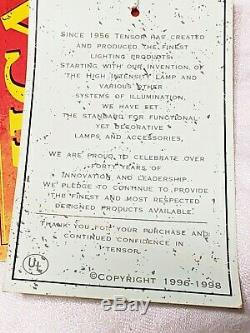 SINCE 1956 TENSOR HAS CREATED
AND PRODUCED THE FINEST
LIGHTING PRODUCTS.
STARTING WITH OUR INVENTION OF
THE HIGH INTENSITY LAMP AND
VARIOUS OTHER
SYSTEMS OF ILLUMINATION,
WE HAVE SET
THE STANDARD FOR FUNCTIONAL
YET DECORATIVE
LAMPS AND ACCESSORIES.
WE ARE PROUD TO CELEBRATE OVER
FORTY YEARS OF
INNOVATION AND LEADERSHIP.
WE PLEDGE TO CONTINUE TO PROVIDE
THE FINEST AND MOST RESPECTED
DESIGNED PRODUCTS AVAILABLE.
THANK YOU FOR YOUR PURCHASE AND
CONTINUED CONFIDENCE IN
TENSOR.
UL
©COPYRIGHT 1996-1998